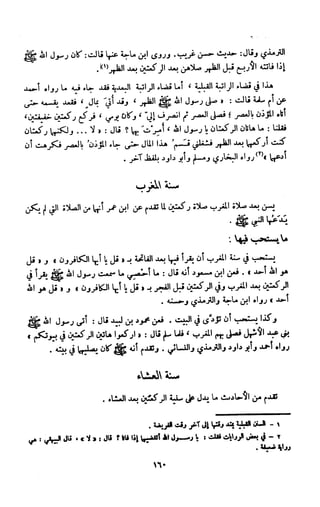 الترمذي وقال: حديث حسن غريب. وروى ابن ماجة عنها قالت: كان رسول الله ﷺ
إذا فاتته الأربع قبل الظهر صلاهن بعد الركعتين بعد الظهر(١).
هذا في قضاء الراتبة القبلية، أما قضاء الراتبة البعدية فقد جاء فيه ما رواه أحمد
عن أم سلمة قالت: « صلى رسول الله ﷺ الظهر، وقد أتي بمال، فقعد يقسمه حتى
أتاه المؤذن بالعصر؛ فصلى العصر ثم انصرف إلي، وكان يومي، فركع ركعتين خفيفتين،
فقلنا: ما هاتان الركعتان يا رسول الله، أمرت بهما؟ قال: « لا ... ولكنهما ركعتان
كنت أركعهما بعد الظهر فشغلني قسم هذا المال حتى جاء المؤذن بالعصر فكرهت أن
أدعهما »(٢) رواه البخاري ومسلم وأبو داود بلفظ آخر.
سنة المغرب
يسن بعد صلاة المغرب صلاة ركعتين لما تقدم عن ابن عمر أنهما من الصلاة التي لم يكن
يدعها النبي ﷺ.
ما يستحب فيها:
يستحب في سنة المغرب أن يقرأ فيها بعد الفاتحة بـ « قل يا أيها الكافرون » و « قل
هو الله أحد ». فعن ابن مسعود أنه قال: ما أحصي ما سمعت رسول الله ﷺ يقرأ في
الركعتين بعد المغرب وفي الركعتين قبل الفجر بـ « قل يا أيها الكافرون » و « قل هو الله
أحد » رواه ابن ماجة والترمذي وحسنه.
وكذا يستحب أن تؤدى في البيت. فعن محمود بن لبيد قال: أتى رسول الله ﷺ
بني عبد الأشهل فصلى بهم المغرب، فلما سلم قال: « اركعوا هاتين الركعتين في بيوتكم »
رواه أحمد وأبو داود والترمذي والنسائي. وتقدم أنه ﷺ كان يصليهما في بيته.
سنة العشاء
تقدم من الأحاديث ما يدل على سنية الركعتين بعد العشاء.
١ - السنن القبلية يمتد وقتها إلى آخر وقت الفريضة.
٢ - في بعض الروايات فقلت: يا رسول الله أتقضيهما إذا فاتا؟ قال: « لا »، قال البيهقي: هي
رواية ضعيفة.
١٦٠